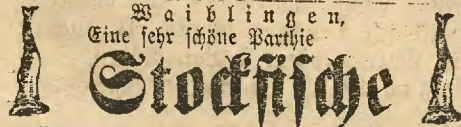 Waiblingen,
Eine sehr schöne Parthie
Stockfische